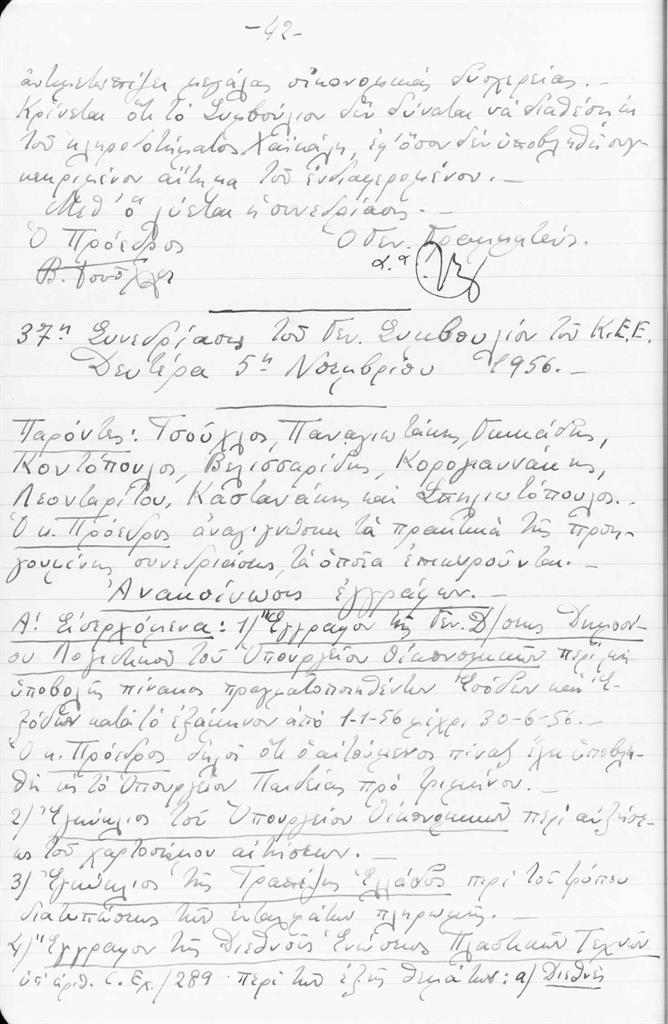 -42-
ἀντιμετωπίζει μεγάλας οἰκονομικάς δυσχερείας.-
Κρίνεται ὅτι τό Συμβούλιον δέν δύναται νά διαθέσῃ ἐκ
τοῦ κληροδοτήματος Χαϊκάλη, ἐφ' ὅσον δέν ὑποβληθῇ συγ-
κεκριμένον αἴτημα τοῦ ἐνδιαφερομένου.-
Μεθ' ὅ λύεται ἡ συνεδρίασις.-
Ὁ Πρόεδρος Ὁ Γεν. Γραμματεύς.
Β. Τσοῦχλος α.α.
37η Συνεδρίασις τοῦ Γεν. Συμβουλίου τοῦ Κ.Ε.Ε.
Δευτέρα 5η Νοεμβρίου 1956.-
Παρόντες: Τσοῦχλος, Παναγιωτάκης,
Κοντόπουλος, Βελισσαρίδης, Κορογιαννάκης,
Λεονταρίτου, Καστανάκης καί Σπηλιωτόπουλος.-
Ὁ κ. Πρόεδρος ἀναγιγνώσκει τά πρακτικά τῆς προη-
γουμένης συνεδριάσεως, τά ὁποῖα ἐπικυροῦνται.-
Ἀνακοίνωσις ἐγγράφων.-
Α! Εἰσερχόμενα: 1) Ἔγγραφον τῆς Γεν. Δ/σεως Δημοσί-
ου Λογιστικοῦ τοῦ Ὑπουργείου Οἰκονομικῶν περί μή
ὑποβολῆς πίνακος πραγματοποιηθέντων Ἐσόδων καί Ἐ-
ξόδων κατά τό ἑξάμηνον ἀπό 1-1-56 μέχρι 30-6-56.-
Ὁ κ. Πρόεδρος δηλοῖ ὅτι ὁ αἰτούμενος πίναξ ἔχει ὑποβλη-
θῇ εἰς τό Ὑπουργεῖον Παιδείας πρό τριμήνου.-
2) Ἐγκύκλιος τοῦ Ὑπουργείου Οἰκονομικῶν περί αὐξήσε-
ως τοῦ χαρτοσήμου αἰτήσεων.-
3) Ἐγκύκλιος τῆς Τραπέζης Ἑλλάδος περί τοῦ τρόπου
διατυπώσεως τῶν ἐνταλμάτων πληρωμῆς.-
4) Ἔγγραφον τῆς Διεθνοῦς Ἑνώσεως Πλαστικῶν Τεχνῶν
ὑπ' ἀριθ. C. Ex./289 περί τῶν ἑξῆς θεμάτων: α) Διεθνές